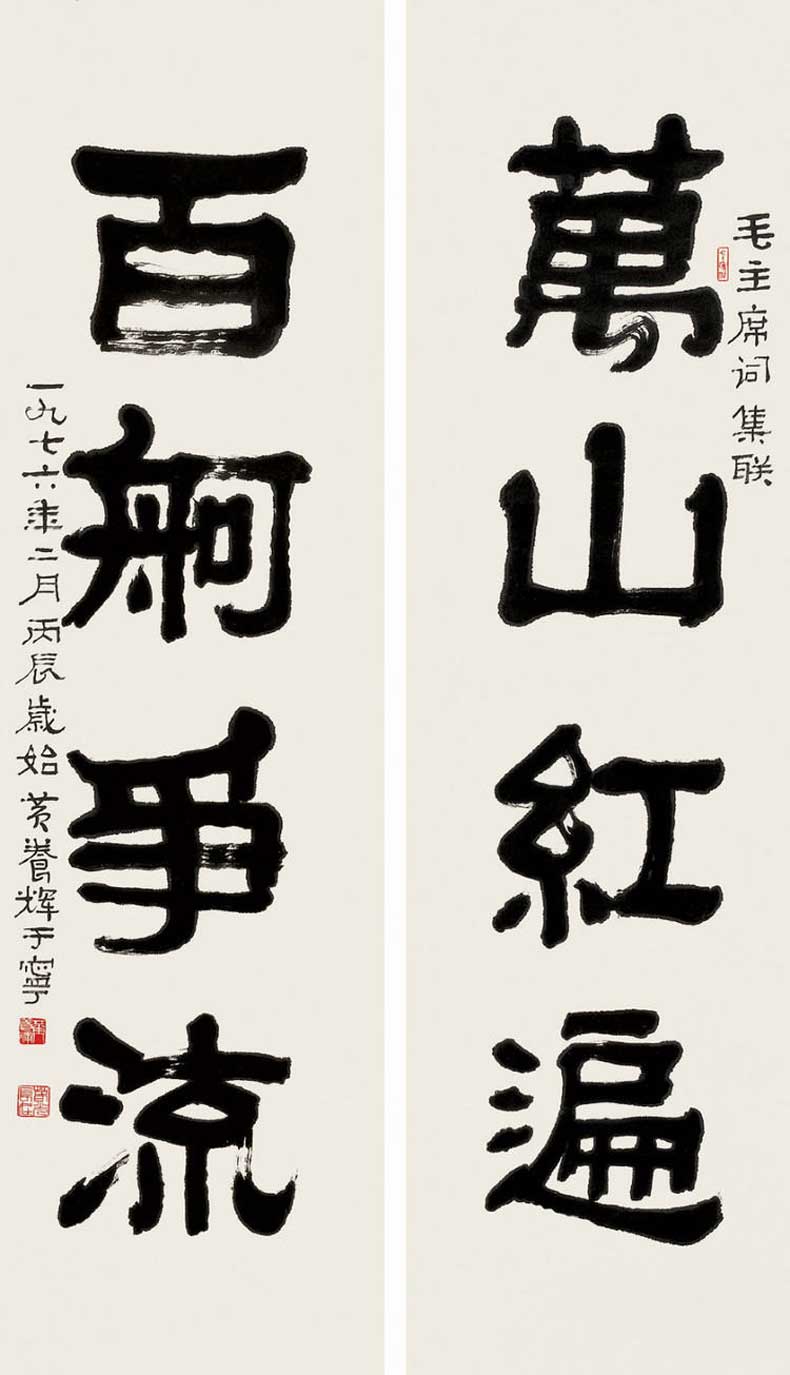 毛主席词集联
萬山紅遍
百舸爭流
一九七六年二月丙辰歲始黄養辉于寧